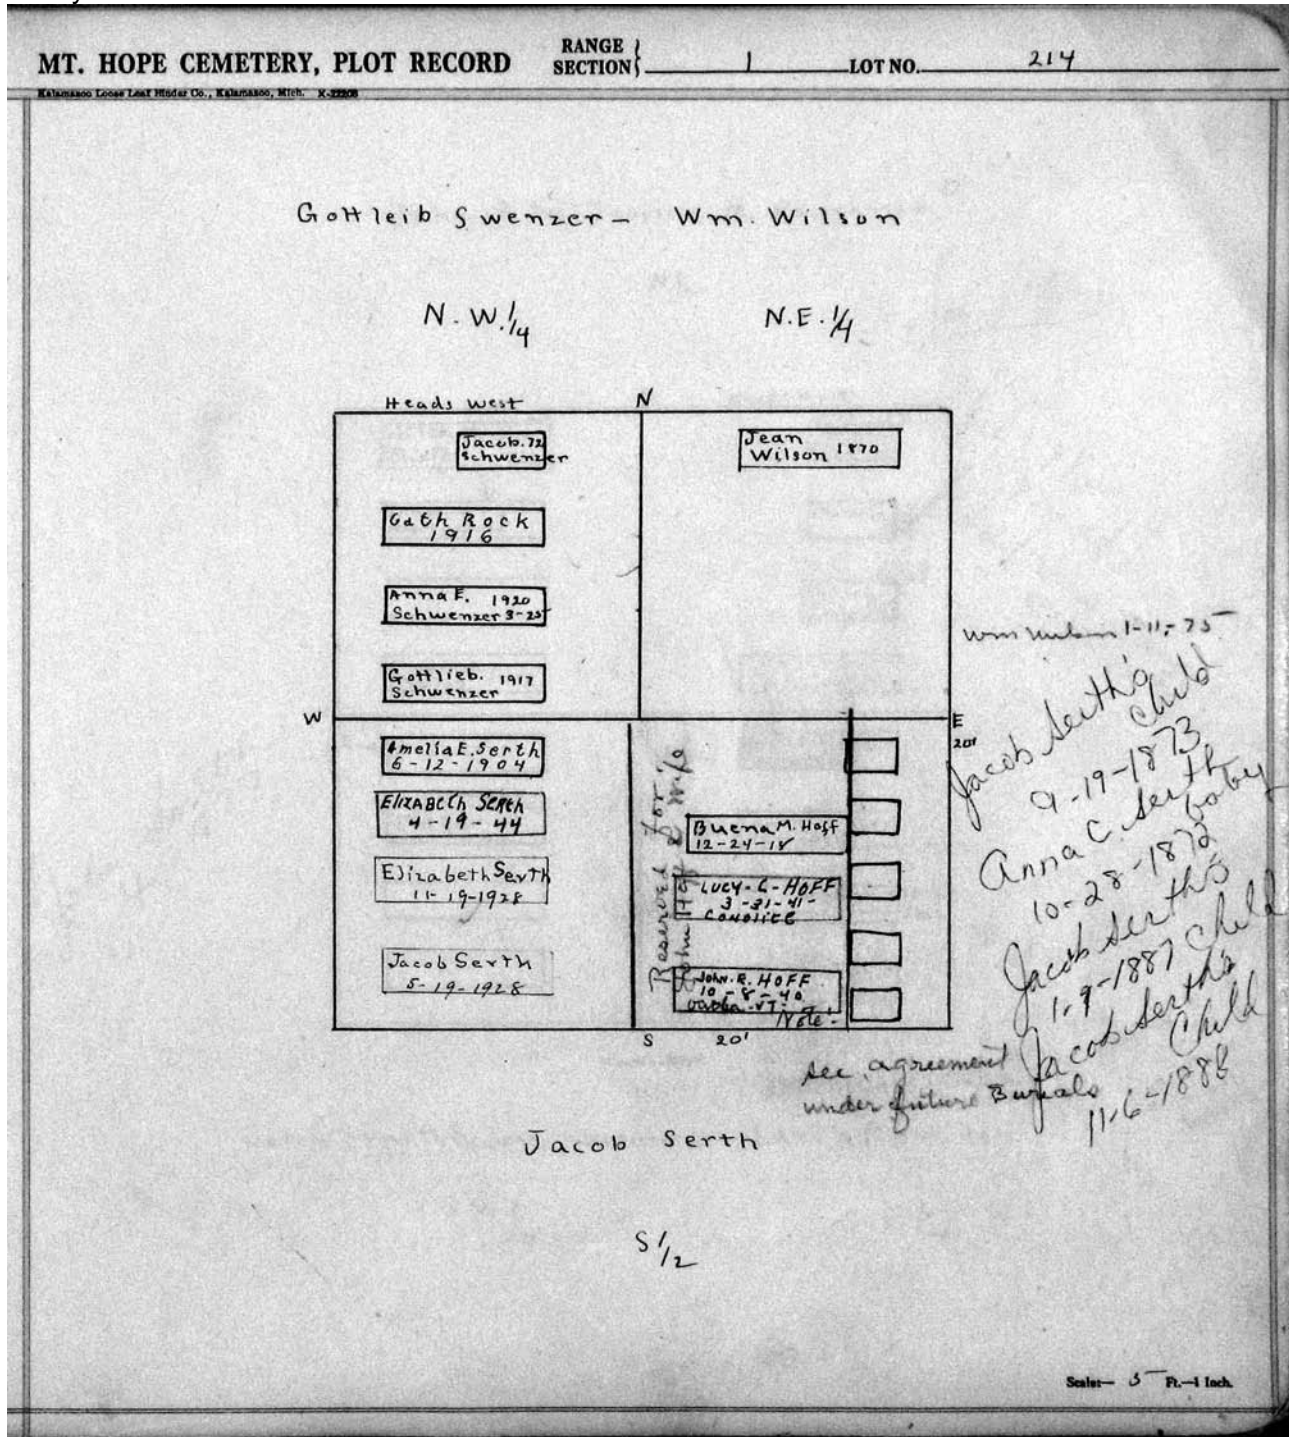 MT. HOPE CEMETERY, PLOT RECORD RANGE SECTION 1 LOT NO. 214
Kalamazoo Loose Leaf Binder Co., Kalamazoo, Mich.
Gottleib Swenzer - Wm. Wilson
N.W. 1/4 N.E. 1/4
Heads West N
Jacob. 72
Schwenzer
Jean
Wilson 1870
Cath Rock
1916
Anna E. 1920
Schwenzer 3-25
Gottlieb. 1917
Schwenzer
W E
20'
Amelia E. Serth
6-12-1904
Elizabeth Serth
4-19-44
Elizabeth Serth
11-19-1928
Jacob Serth
5-19-1928
Reserved for
John Hoff & Wife
Buena M. Hoff
12-24-18
Lucy-C-Hoff
3-31-41-
John.R.Hoff
10-8-40
Note!
S 20'
1-11-75
Jacob Serth's
Child
9-19-1873
Anna C. Serth
baby
10-28-1872
Jacob Serth's
Child
1-9-1887
Jacob Serth's
Child
11-6-1888
see agreement
under future Burials
Jacob Serth
S 1/2
Scale:— 5 Ft.—1 Inch.